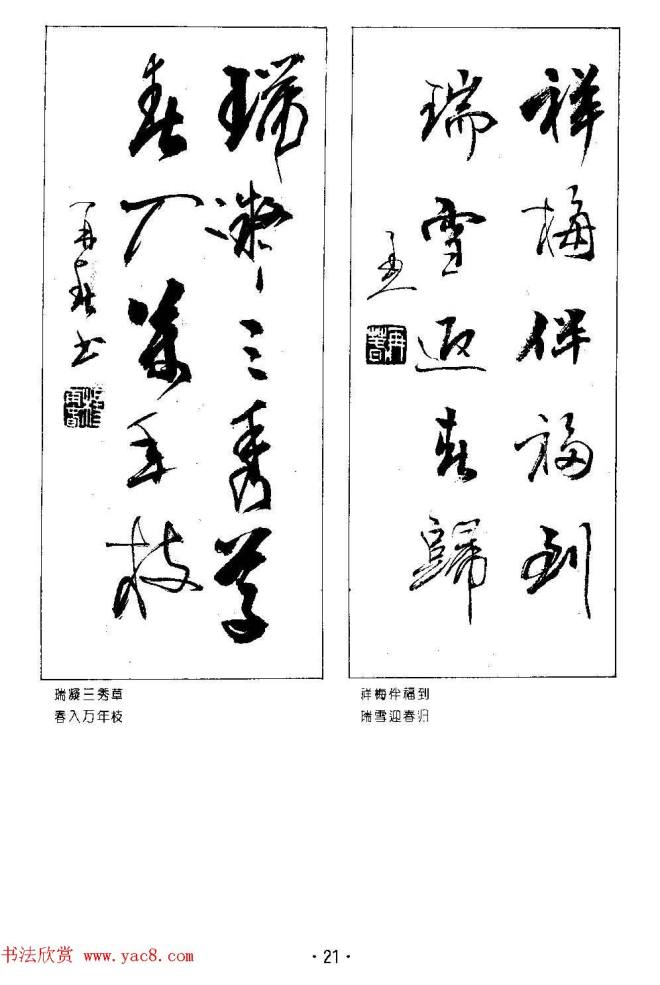 祥梅伴福到
瑞雪迎春歸
瑞凝三秀草
春入万年枝
瑞凝三秀草
春入万年枝
祥梅伴福到
瑞雪迎春归
·21·
书法欣赏 www.yac8.com